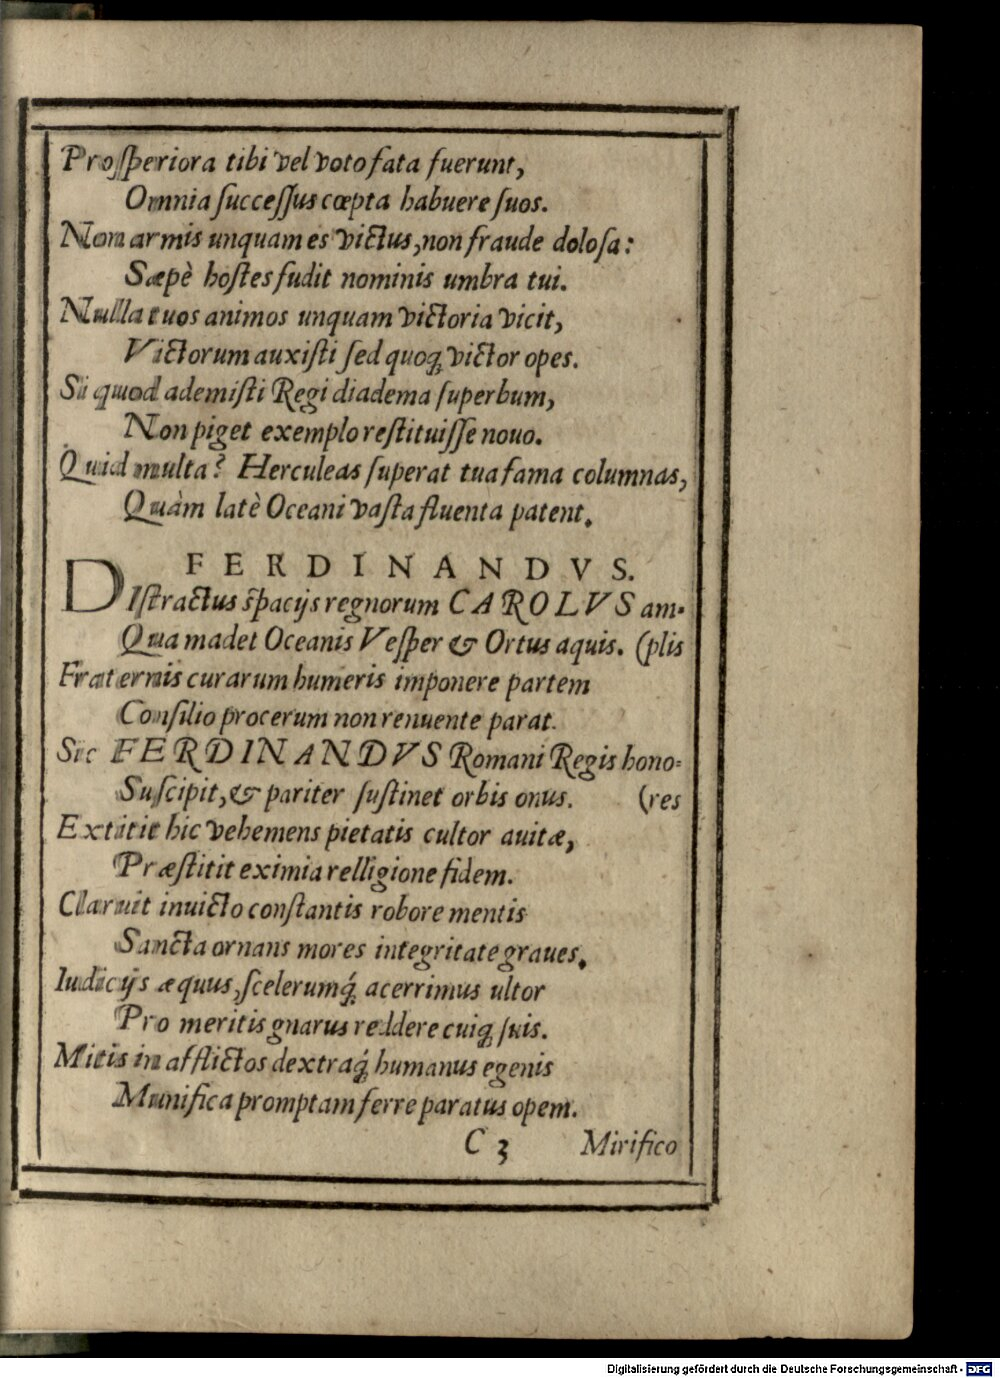 Proſperiora tibi vel voto fata fuerunt,
Omnia ſucceſſus cœpta habuere ſuos.
Non armis unquam es victus, non fraude doloſa:
Sæpè hoſtes fudit nominis umbra tui.
Nulla tuos animos unquam victoria vicit,
Victorum auxiſti ſed quoq́ victor opes.
Si quod ademiſti Regi diadema ſuperbum,
Non piget exemplo reſtituiſſe nouo.
Quid multa? Herculeas ſuperat tua fama columnas,
Quàm latè Oceani vaſta fluenta patent.
FERDINANDVS.
DIſtractus ſpacijs regnorum CAROLVS am-
Qua madet Oceanis Veſper & Ortus aquis. (plis
Fraternis curarum humeris imponere partem
Conſilio procerum non renuente parat.
Sic FERDINANDVS Romani Regis hono-
Suſcipit, & pariter ſuſtinet orbis onus. (res
Extitit hic vehemens pietatis cultor auitæ,
Præſtitit eximia relligione fidem.
Claruit inuicto conſtantis robore mentis
Sancta ornans mores integritate graues.
Iudicijs æquus, ſcelerumq́ acerrimus ultor
Pro meritis gnarus reddere cuiq́ ſuis.
Mitis in afflictos dextraq́ humanus egenis
Munifica promptam ferre paratus opem.
C 3 Mirifico
Digitalisierung gefördert durch die Deutsche Forschungsgemeinschaft - DFG